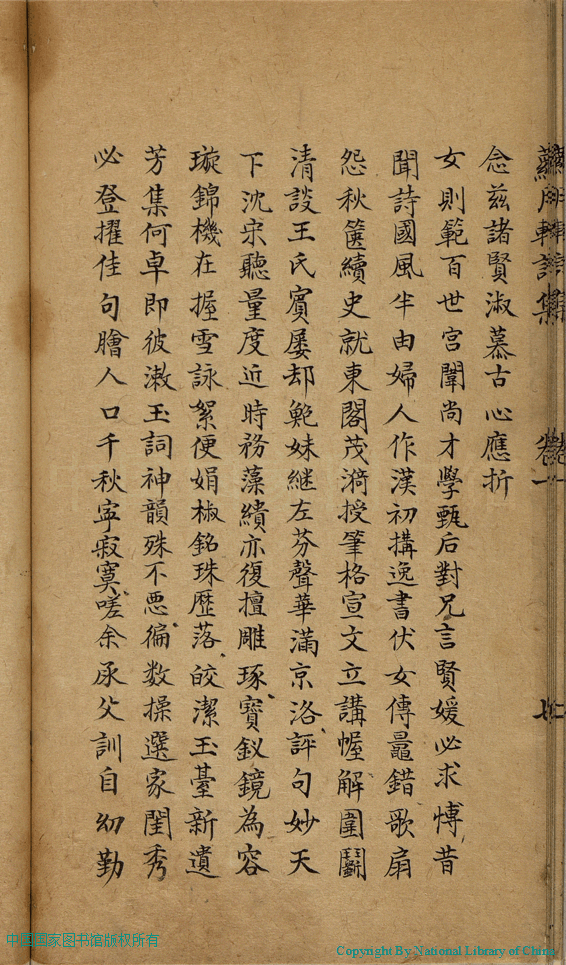 蘿月軒詩集 卷一 七
念茲諸賢淑慕古心應折
女則範百世宮闈尚才學甄后對兄言賢媛必求愽昔
聞詩國風半由婦人作漢初搆逸書伏女傳鼂錯歌扇
怨秋篋續史就東閣茂漪授筆格宣文立講幄解圍鬭
清談王氏賓屢却鮑妹継左芬聲華滿京洛評句妙天
下沈宋聽量度近時務藻繢亦復擅雕琢寶釵鏡為容
璇錦機在握雪詠絮便娟椒銘珠歷落皎潔玉臺新遺
芳集何卓即彼漱玉詞神韻殊不悪徧数操選家閨秀
必登擢佳句膾人口千秋寧寂寞嗟余承父訓自幼勤
中国国家图书馆版权所有
Copyright By National Library of China